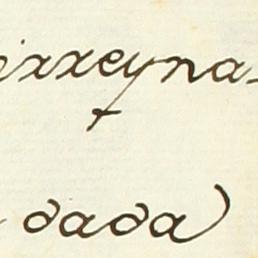 irreyna-
dada)